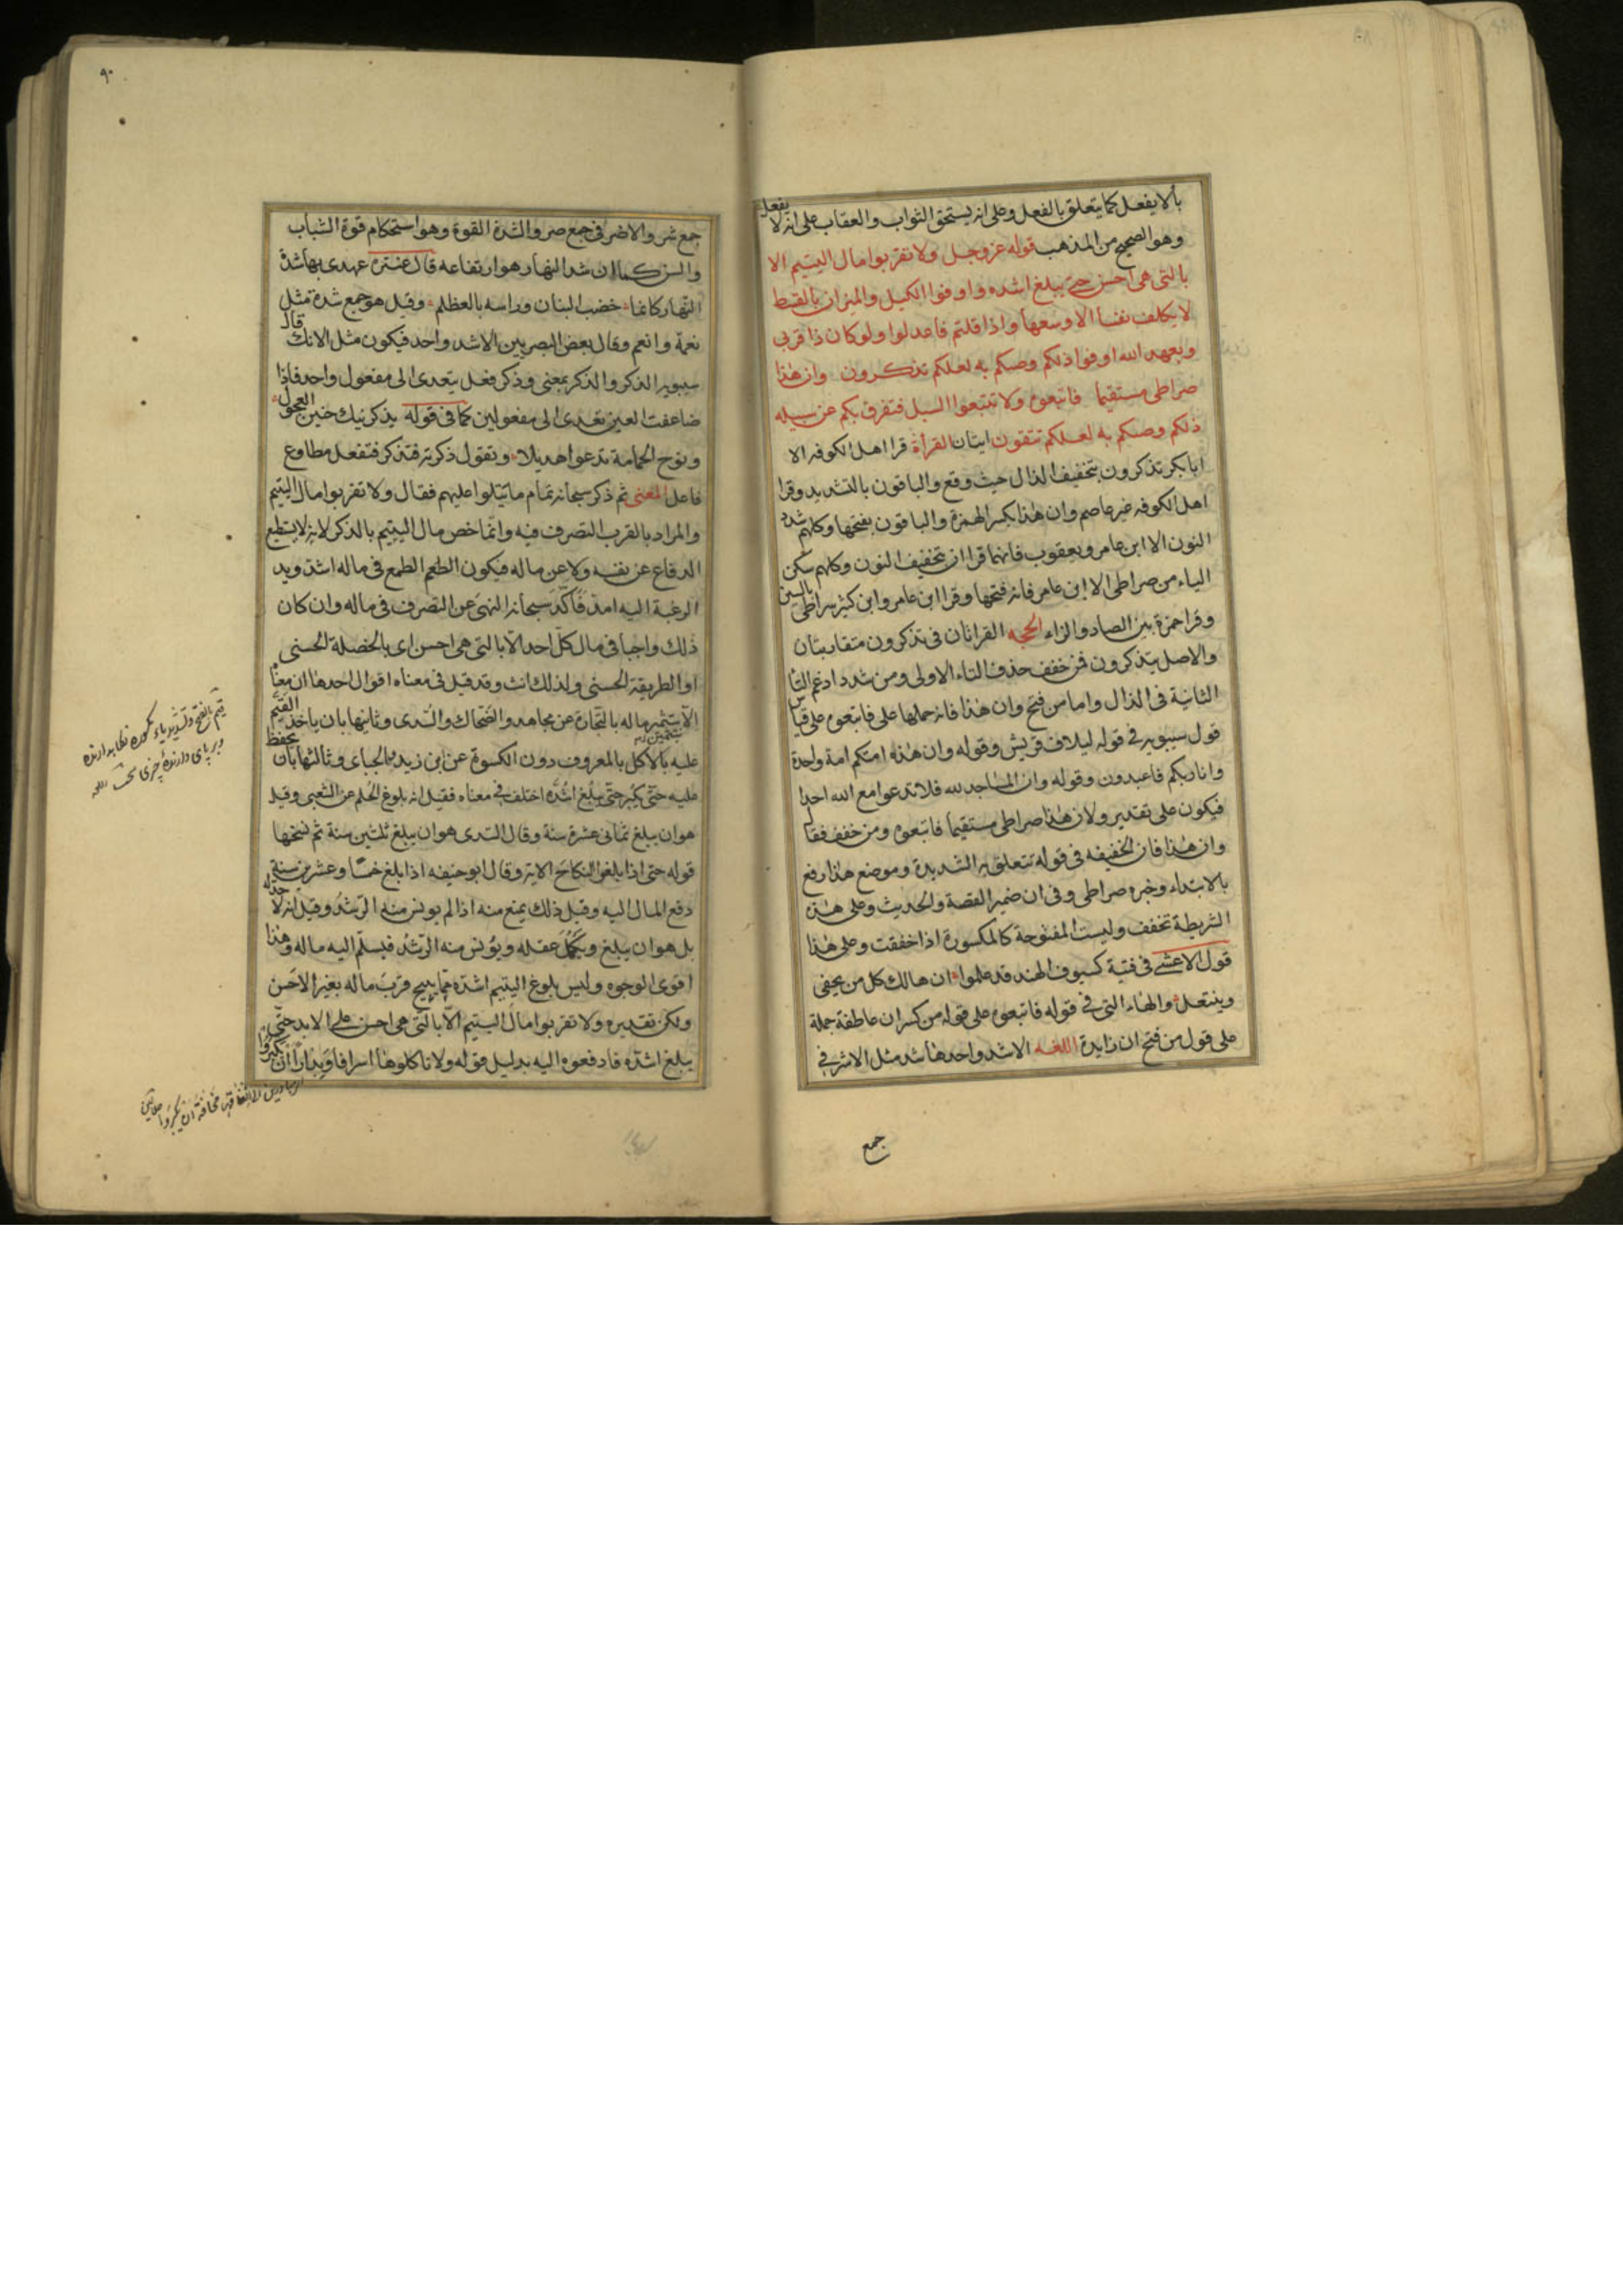 بألا يفعل كما يتعلق بالفعل وعلى انه يستحق الثواب والعقاب على انه لا يفعل
وهو الصحيح من المذهب قوله عز وجل ولا تقربوا مال اليتيم الا
بالتى هى احسن حتى يبلغ اشده واوفوا الكيل والميزان بالقسط
لا يكلف نفسا الا وسعها واذا قلتم فاعدلوا ولو كان ذا قربى
وبعهد الله اوفوا ذلكم وصيكم به لعلكم تذكرون وان هذا
صراطى مستقيما فاتبعوه ولا تتبعوا السبل فتفرق بكم عن سبيله
ذلكم وصيكم به لعلكم تتقون ايتان القرأة قرا اهل الكوفه الا
ابا بكر تذكرون بتخفيف الذال حيث وقع والباقون بالتشديد وقرا
اهل الكوفه غير عاصم وان هذا بكسر الهمزة والباقون بفتحها وكلهم شدد
النون الا ابن عامر ويعقوب فانهما قرا ان بتخفيف النون وكلهم سكن
الياء من صراطى الا ابن عامر فانه فتحها وقرا ابن عامر وابن كثير سراطى بالسين
وقرا حمزة بين الصاد والزاء الحجه القراتان فى تذكرون متقاربتان
والاصل يتذكرون فمن خفف حذف التاء الاولى ومن شدد ادغم التا
الثانية فى الذال واما من فتح وان هذا فانه حملها على فاتبعوه على قياس
قول سيبويه فى قوله ليلاف قريش وقوله وان هذه امتكم امة واحدة
وانا ربكم فاعبدون وقوله وان المساجد لله فلا تدعوا مع الله احدا
فيكون على تقدير ولان هذا صراطى مستقيما فاتبعوه ومن خفف فقال
وان هذا فان الخفيفه فى قوله تتعلق به الشديدة وموضع هذا رفع
بالابتداء وخبره صراطى وفى ان ضمير القصة والحديث وعلى هذه
الشريطة تخفف وليست المفتوحة كالمكسورة اذا خففت وعلى هذا
قول الاعشى فى فتية كسيوف الهند قد علموا ان هالك كل من يحفى
وينتعل والفاء التى فى قوله فاتبعوه على قوله من كسر ان عاطفة جملة
على قول من فتح ان زايدة اللغه الاشد واحدها شد مثل الاشر فى
جمع
٩٠
جمع شر والاضر فى جمع ضر والشدة القوة وهو استحكام قوة الشباب
والسن كما ان شد النهار هو ارتفاعه قال عنتره عهدى بها شد
النهار كانما خضب البنان وراسه بالعظلم وقيل هو جمع شدة مثل
نعمة وانعم وقال بعض البصريين الاشد واحد فيكون مثل الانك قال
سيبويه الذكر والذكر بمعنى وذكر فعل يتعدى الى مفعول واحد فاذا
ضاعفت العين تعدى الى مفعولين كما فى قوله يذكرنيك حنين العجول
ونوح الحمامة تدعوا هديلا وتقول ذكرته فتذكر فتفعل مطاوع
فاعل المعنى ثم ذكر سبحانه تمام ما يتلوا عليهم فقال ولا تقربوا مال اليتيم
والمراد بالقرب التصرف فيه وانما خص مال اليتيم بالذكر لانه لا يستطيع
الدفاع عن نفسه ولا عن ماله فيكون الطمع فى ماله اشد ويد
الرغبة اليه امد فاكد سبحانه النهى عن التصرف فى ماله وان كان
ذلك واجبا فى مال كل احد الا بالتى هى احسن اى بالخصلة الحسنى
او الطريقة الحسنى ولذلك انث وقد قيل فى معناه اقوال احدها ان معناه
الا بتثمير ماله بالتجارة عن مجاهد والضحاك والسدى وثانيها بان ياخذ القيم
عليه بالاكل بالمعروف دون الكسوة عن ابن زيد والجباى وثالثها بان يحفظ
عليه حتى يكبر حتى يبلغ اشده اختلف فى معناه فقيل انه بلوغ الحلم عن الشعبى وقيل
هو ان يبلغ ثمانى عشرة سنة وقال السدى هو ان يبلغ ثلثين سنة ثم نسخها
قوله حتى اذا بلغوا النكاح الاية وقال ابو حنيفه اذا بلغ خمسا وعشرين سنة
دفع المال اليه وقبل ذلك يمنع منه اذا لم يونس منه الرشد وقيل انه لا حد له
بل هو ان يبلغ ويكمل عقله ويؤنس منه الرشد فيسلم اليه ماله وهذا
اقوى الوجوه وليس بلوغ اليتيم اشده مما يبيح قرب ماله بغير الاحسن
ولكن تقديره ولا تقربوا مال اليتيم الا بالتى هى احسن على الابد حتى
يبلغ اشده فادفعوه اليه بدليل قوله ولا تاكلوها اسرافا وبدارا ان يكبروا